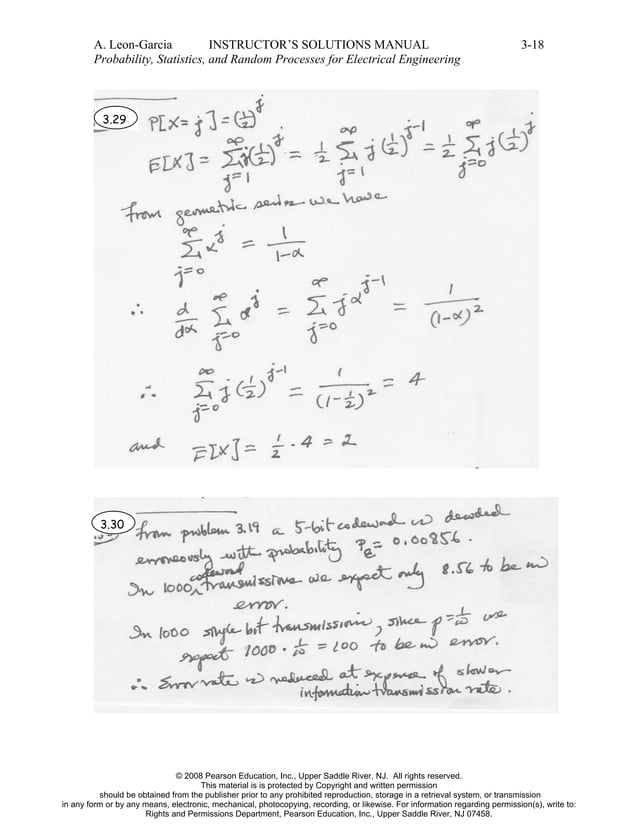 A. Leon-Garcia INSTRUCTOR'S SOLUTIONS MANUAL 3-18
Probability, Statistics, and Random Processes for Electrical Engineering
3.29 P[X = j] = (1/2)^j
E[X] = Σ_{j=1}^∞ j(1/2)^j = 1/2 Σ_{j=1}^∞ j(1/2)^{j-1} = 1/2 Σ_{j=0}^∞ j(1/2)^j
From geometric series we have
Σ_{j=0}^∞ α^j = 1/(1-α)
∴ d/dα Σ_{j=0}^∞ α^j = Σ_{j=0}^∞ jα^{j-1} = 1/(1-α)^2
∴ Σ_{j=0}^∞ j(1/2)^{j-1} = 1/(1-1/2)^2 = 4
and E[X] = 1/2 · 4 = 2
3.30 From problem 3.19 a 5-bit codeword is decoded
erroneously with probability P_e = 0.00856.
In 1000 codeword transmissions we expect only 8.56 to be in
error.
In 1000 single bit transmissions, since p = 1/10 we
expect 1000 · 1/10 = 100 to be in error.
∴ Error rate is reduced at expense of slower
information transmission rate.
© 2008 Pearson Education, Inc., Upper Saddle River, NJ. All rights reserved.
This material is is protected by Copyright and written permission
should be obtained from the publisher prior to any prohibited reproduction, storage in a retrieval system, or transmission
in any form or by any means, electronic, mechanical, photocopying, recording, or likewise. For information regarding permission(s), write to:
Rights and Permissions Department, Pearson Education, Inc., Upper Saddle River, NJ 07458.